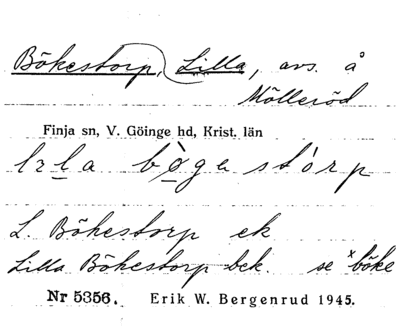 Bökestorp, Lilla, avs. å
Mölleröd
Finja sn, V. Göinge hd, Krist. län
bògastórp
L. Bökestorp ek
Lilla Bökestorp bek. se ˣböke
Nr 5356. Erik W. Bergenrud 1945.